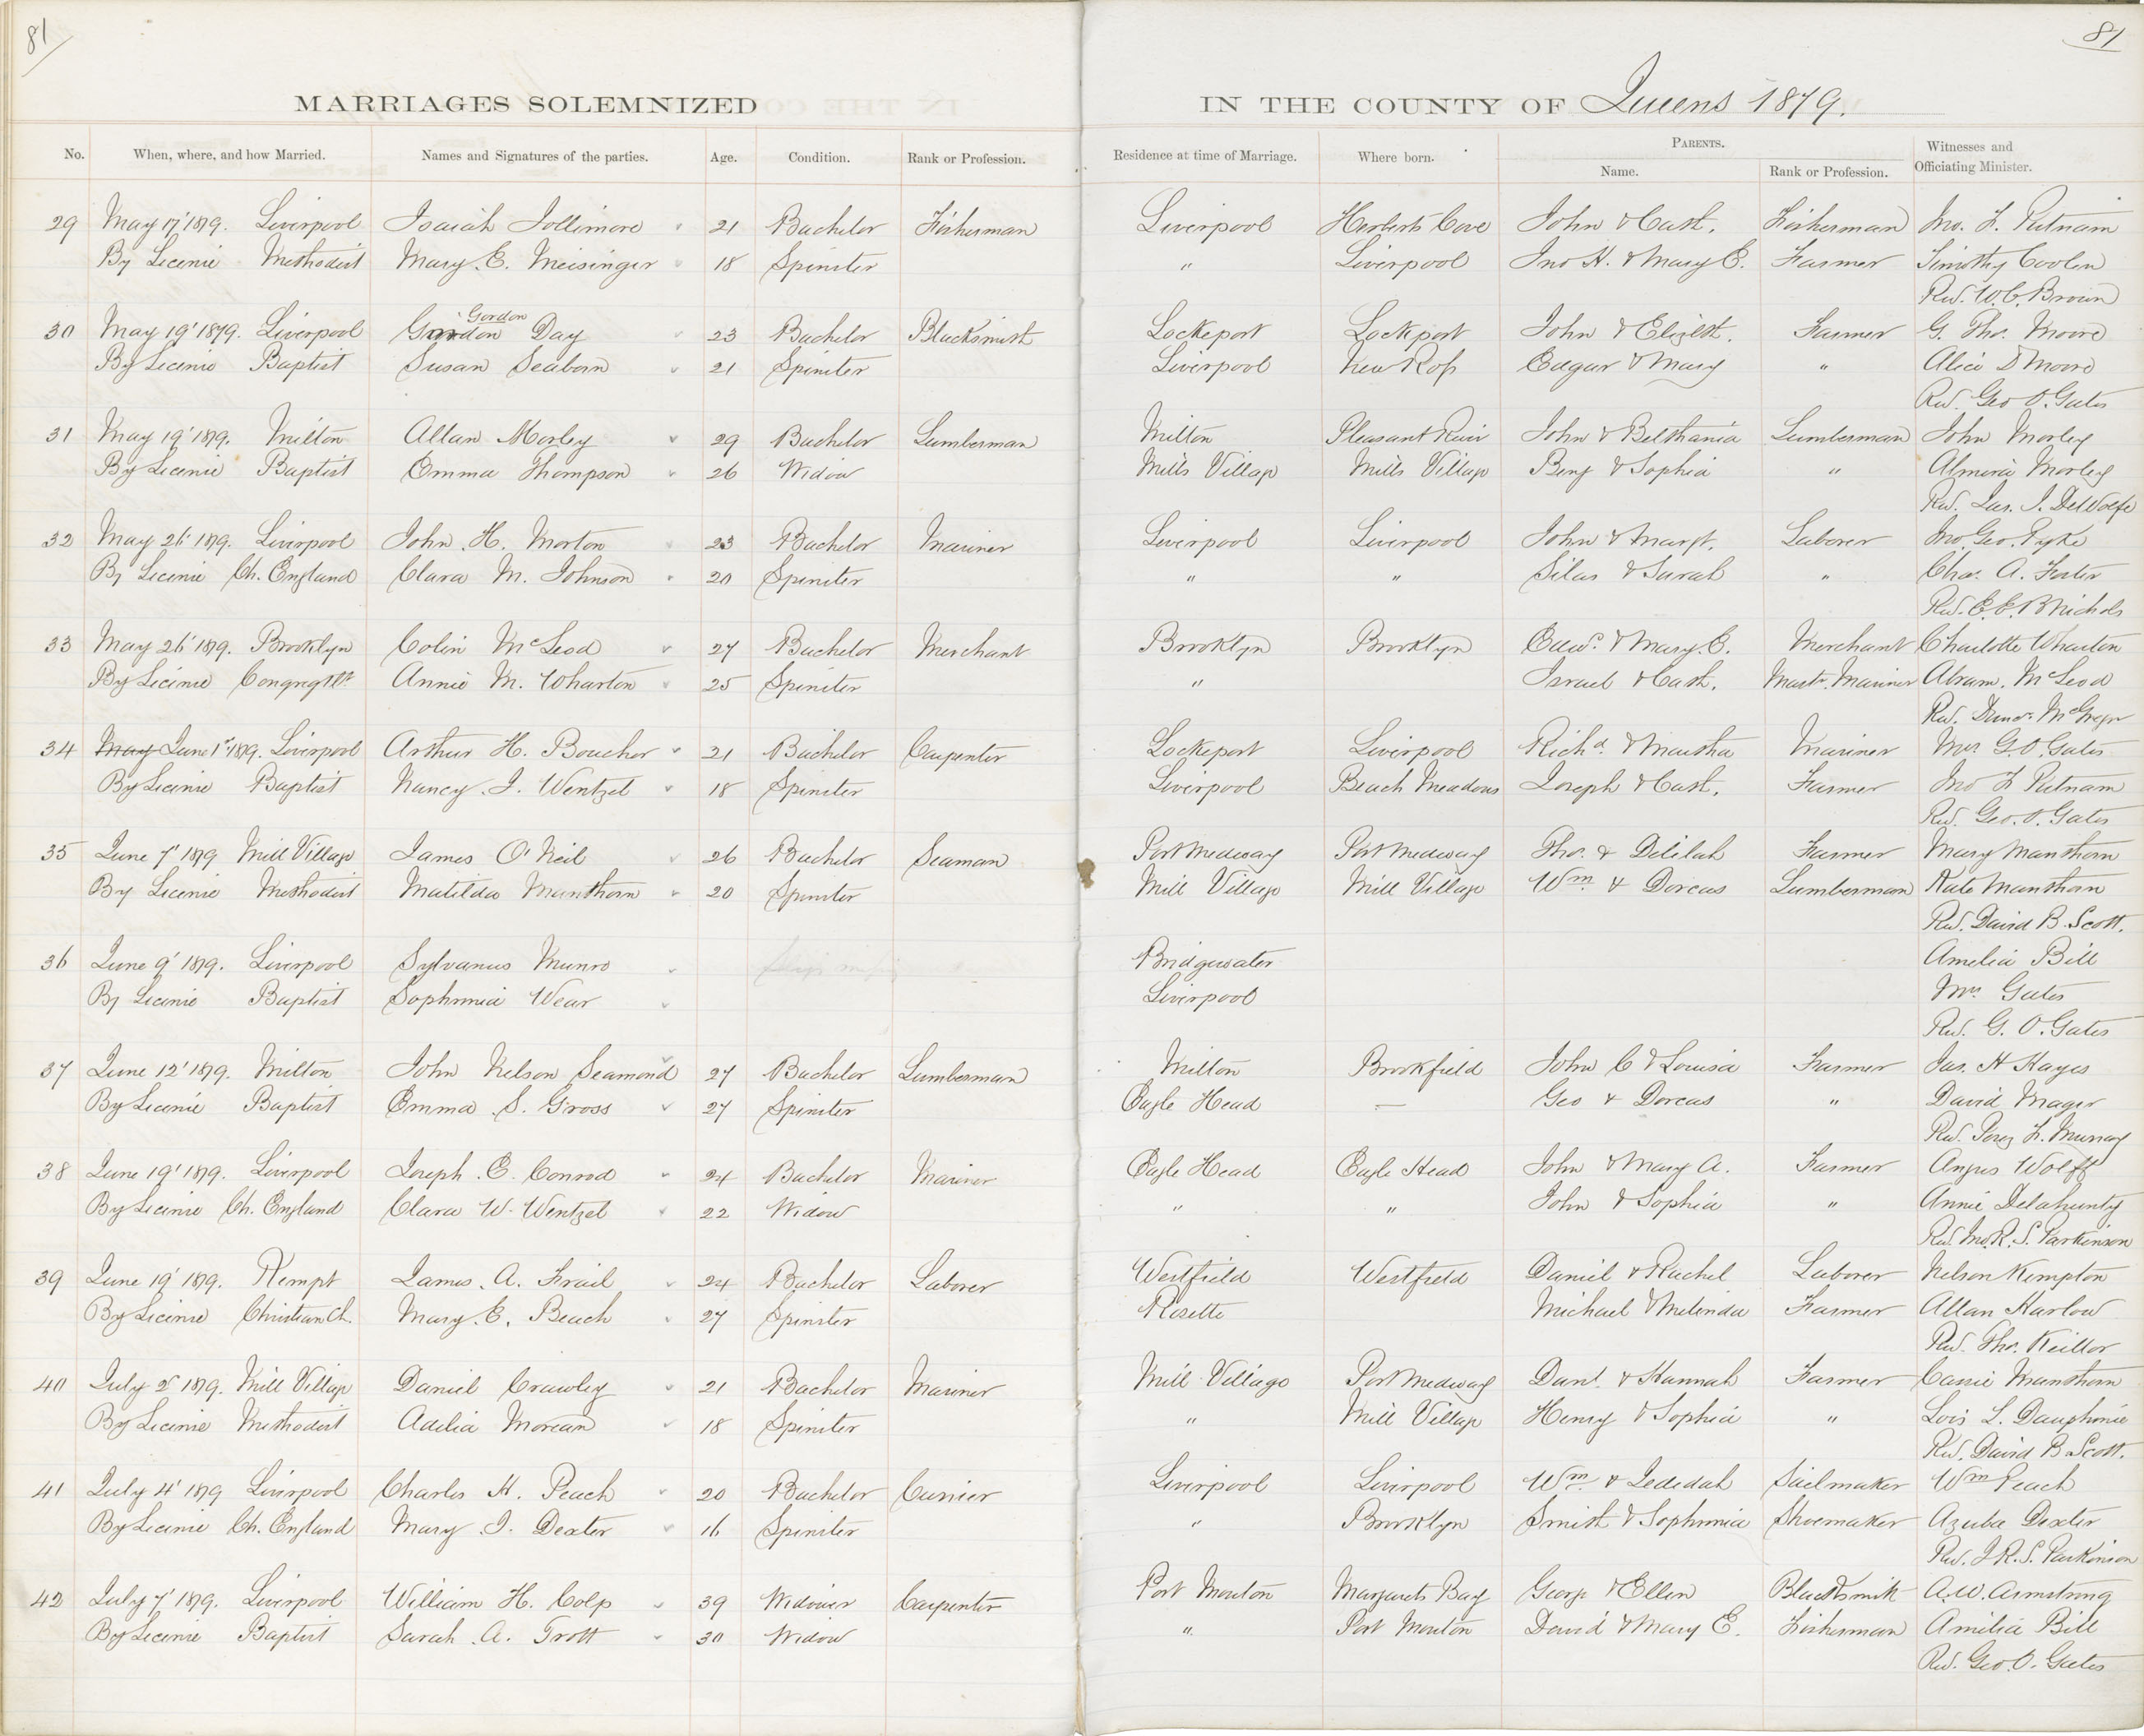 81
81
MARRIAGES SOLEMNIZED IN THE COUNTY OF Queens 1879.
No. When, where, and how Married. Names and Signatures of the parties. Age. Condition. Rank or Profession. Residence at time of Marriage. Where born. PARENTS. Name. Rank or Profession. Witnesses and Officiating Minister.
29 May 17' 1879. Liverpool Isaiah Jollimore 21 Bachelor Fisherman Liverpool Herberts Cove John & Cath. Fisherman Jno. F. Putnam
By License Methodist Mary E. Meisinger 18 Spinster " Liverpool Jno H. & Mary E. Farmer Timothy Coolen
Rev. W. C. Brown
Gordon
30 May 19' 1879. Liverpool Day 23 Bachelor Blacksmith Lockeport Lockeport John & Elizbth. Farmer G. Tho. Moore
By License Baptist Susan Seaborn 21 Spinster Liverpool New Ross Edgar & Mary " Alice D Moore
Rev. Geo O. Gates
31 May 19' 1879. Milton Allan Morley 29 Bachelor Lumberman Milton Pleasant River John & Belthania Lumberman John Morley
By License Baptist Emma Thompson 26 Widow Mills Village Mills Village Benj & Sophia " Almira Morley
Rev. Jas. I. DeWolfe
32 May 26' 1879. Liverpool John H. Morton 23 Bachelor Mariner Liverpool Liverpool John & Margt. Laborer Jno. Geo. Pyke
By License Ch. England Clara M. Johnson 20 Spinster " " Silas & Sarah " Chas. A. Foster
Rev. E. E. B Nichols
33 May 26' 1879. Brooklyn Colin McLeod 27 Bachelor Merchant Brooklyn Brooklyn Edwd. & Mary E. Merchant Charlotte Wharton
By License Annie M. Wharton 25 Spinster " Israel & Cath. Mastr. Mariner Abram. McLeod
Rev. McGregor
34 May June 1st 1879. Liverpool Arthur H. Boucher 21 Bachelor Carpenter Lockeport Liverpool Richd. & Martha Mariner Mrs G. O. Gates
By License Baptist Nancy J. Wentzel 18 Spinster Liverpool Beach Meadows Joseph & Cath. Farmer Jno F Putnam
Rev. Geo. O. Gates
35 June 7' 1879 Mill Village James O'Neil 26 Bachelor Seaman Port Medway Port Medway Tho. & Delilah Farmer Mary Manthorn
By License Methodist Matilda Manthorn 20 Spinster Mill Village Mill Village Wm. & Dorcas Lumberman Kate Manthorn
Rev. David B. Scott.
36 June 9' 1879. Liverpool Sylvanus Munro Bridgewater Amelia Bill
By License Baptist Sophronia Wear Liverpool Mrs Gates
Rev. G. O. Gates
37 June 12' 1879. Milton John Nelson Seamond 27 Bachelor Lumberman Milton Brookfield John C & Louisa Farmer Jas. H Hayes
By License Baptist Emma S. Gross 27 Spinster Eagle Head — Geo & Dorcas " David Mager
Rev. Perez F. Murray
38 June 19' 1879. Liverpool Joseph E. Conrod 24 Bachelor Mariner Eagle Head Eagle Head John & Mary A. Farmer Angus Wolff
By License Ch. England Clara W. Wentzel 22 Widow " " John & Sophia " Annie Delahunty
Rev. Jno. R. S. Parkinson
39 June 19' 1879. Kempt James A. Frail 24 Bachelor Laborer Westfield Westfield Daniel & Rachel Laborer Nelson Kempton
By License Christian Ch. Mary E. Beach 27 Spinster Rosette Michael & Melinda Farmer Allan Harlow
Rev. Tho. Keillor
40 July 2d 1879. Mill Village Daniel Crawley 21 Bachelor Mariner Mill Village Port Medway Danl. & Hannah Farmer Cassie Manthorn
By License Methodist Adelia Morean 18 Spinster " Mill Village Henry & Sophia " Lois L. Dauphinie
Rev. David B Scott.
41 July 4' 1879 Liverpool Charles H. Peach 20 Bachelor Currier Liverpool Liverpool Wm. & Jedidah Sailmaker Wm Peach
By License Ch. England Mary J. Dexter 16 Spinster " Brooklyn Smith & Sophronia Shoemaker Azuba Dexter
Rev. J. R. S. Parkinson
42 July 7' 1879. Liverpool William H. Colp 39 Widower Carpenter Port Mouton Margarets Bay George & Ellen Blacksmith A. W. Armstrong
By License Baptist Sarah A. Trott 30 Widow " Port Mouton David & Mary E. Fisherman Amelia Bill
Rev. Geo. O. Gates